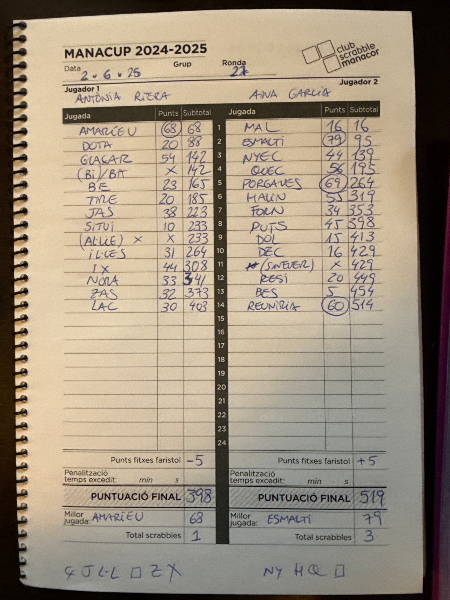 MANACUP 2024-2025
club scrabble manacor
Data 2·6·25 Grup Ronda 27
Jugador 1 Jugador 2
ANTÒNIA RIERA AINA GARCIA
Jugada Punts Subtotal Jugada Punts Subtotal
AMARIEU 68 68 1 MAL 16 16
DOTA 20 88 2 ESMALTI 79 95
GLAÇAR 54 142 3 NYEC 44 139
(BI)/BA X 142 4 QUEC 56 195
BE 23 165 5 PORGAVES 69 264
TIRE 20 185 6 HALIN 55 319
JAS 38 223 7 FORN 34 353
SITUI 10 233 8 PUTS 45 398
X 233 9 DOL 15 413
31 264 10 DEC 16 429
IX 44 308 11 X 429
NORA 33 341 12 RESI 20 449
ZAS 32 373 13 BES 5 454
LAC 30 403 14 REUNIRIA 60 514
15
16
17
18
19
20
21
22
23
24
Punts fitxes faristol -5 Punts fitxes faristol +5
Penalització temps excedit: min s Penalització temps excedit: min s
PUNTUACIÓ FINAL 398 PUNTUACIÓ FINAL 519
Millor jugada: AMARIEU 68 Millor jugada: ESMALTI 79
Total scrabbles 1 Total scrabbles 3
Ç J L·L □ Z X NY H Q □